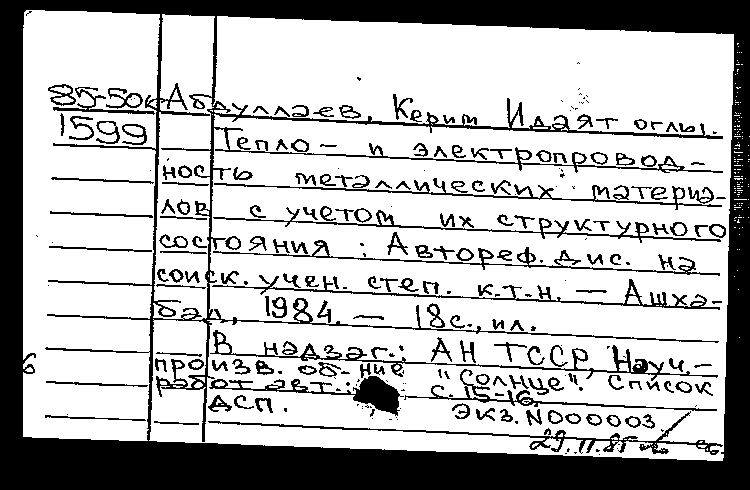 85-50к Абдуллаев, Керим Идаят оглы.
1599 Тепло- и электропровод-
ность металлических материа-
лов с учетом их структурного
состояния : Автореф. дис. на
соиск. учен. степ. к.т.н. — Ашха-
бад, 1984. — 18 с., ил.
В надзаг.: АН ТССР, Науч.-
произв. об-ние "Солнце". Список
работ авт.: с. 15-16
ДСП. Экз. N000003
29.11.85